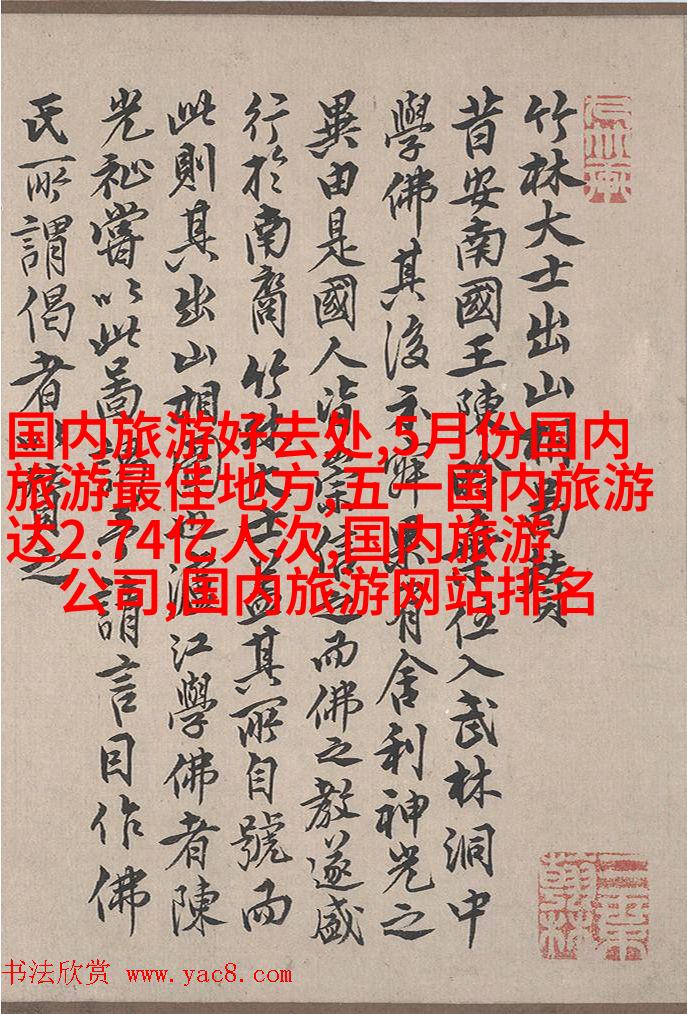 竹林大士出山相
昔安南國王陳位入武林洞中
學佛其後示解果有舍利神光之
異由是國人皆崇信之而佛之教遂盛
行於南裔竹林大士蓋其所自號而
此則其出山相圖也江學佛者陳
光祉嘗以此啚予言目作佛
氏所謂偈者之
国内旅游好去处,5月份国内
旅游最佳地方,五一国内旅游
达2.74亿人次,国内旅游
公司,国内旅游网站排名
书法欣赏 www.yac8.com